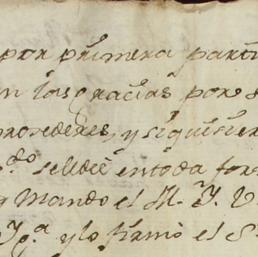 por primera part
n las gracias por s
procederes, y siquisier
do se le dè en toda for
y Mando el M. Y. V.
Y.ª y lo firmò el S.